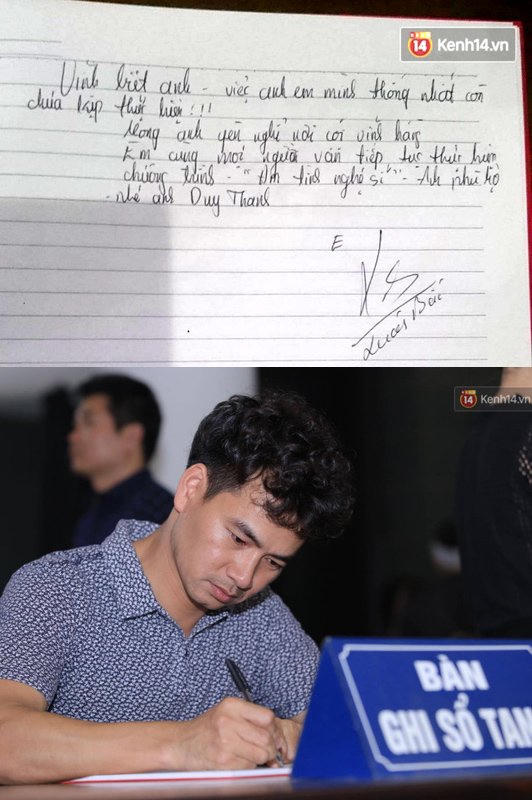 14 Kenh14.vn
Vĩnh biệt anh - việc anh em mình thống nhất còn
chưa kịp thực hiện!!!
Mong anh yên nghỉ nơi cõi vĩnh hằng
Em cùng mọi người vẫn tiếp tục thực hiện
chương trình - "Ấm tình nghệ sĩ" - Anh phù hộ
nhé anh Duy Thanh
E
Xuân Bắc
14 Kenh14.vn
BÀN
GHI SỔ TAN